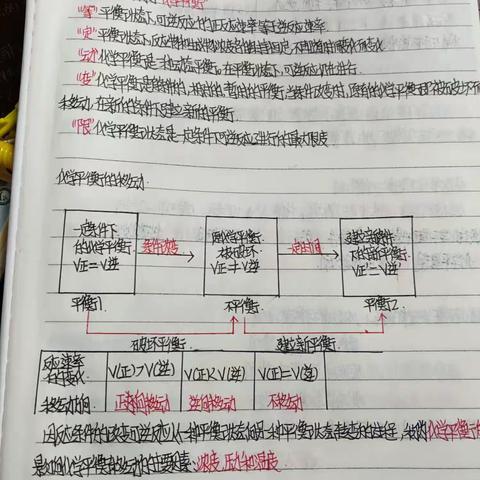 "等"平衡状态下,可逆反应的正反应速率等于逆反应速率
"定"平衡状态下,反应物和生成物浓度各自保持恒定,不再随时间变化而变化
"动"化学平衡是一种动态平衡,在平衡状态下,可逆反应仍在进行.
"变"化学平衡是有条件的、相对的、暂时的平衡,当条件改变时,原有的化学平衡
移动,在新的条件下建立新的平衡.
"限"化学平衡状态是一定条件下可逆反应进行的最大限度
化学平衡的移动
一定条件下的化学平衡 V正=V逆
条件改变
原化学平衡被破坏 V正≠V逆
一定时间
建立新条件下的新平衡 V正'=V逆'
平衡1 不平衡 平衡2
破坏平衡 建立新平衡
反应速率的变化 V(正)>V(逆) V(正)<V(逆) V(正)=V(逆)
移动方向 正向移动 逆向移动 不移动
因反应条件的改变,可逆反应从一种平衡状态向另一种平衡状态转变的过程,称为化学平衡的
影响化学平衡移动的主要因素:浓度、压强和温度.